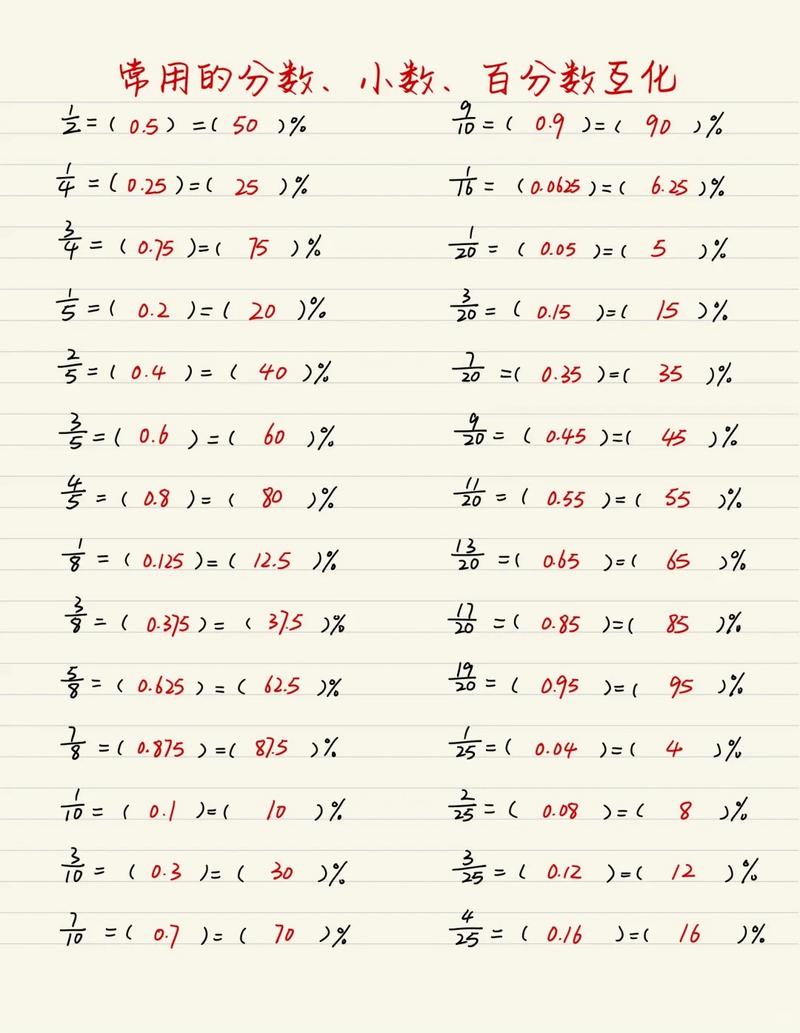 常用的分数、小数、百分数互化
1/2=(0.5)=(50)%
1/4=(0.25)=(25)%
3/4=(0.75)=(75)%
1/5=(0.2)=(20)%
2/5=(0.4)=(40)%
3/5=(0.6)=(60)%
4/5=(0.8)=(80)%
1/8=(0.125)=(12.5)%
3/8=(0.375)=(37.5)%
5/8=(0.625)=(62.5)%
7/8=(0.875)=(87.5)%
1/10=(0.1)=(10)%
3/10=(0.3)=(30)%
7/10=(0.7)=(70)%
9/10=(0.9)=(90)%
1/16=(0.0625)=(6.25)%
1/20=(0.05)=(5)%
3/20=(0.15)=(15)%
7/20=(0.35)=(35)%
9/20=(0.45)=(45)%
11/20=(0.55)=(55)%
13/20=(0.65)=(65)%
17/20=(0.85)=(85)%
19/20=(0.95)=(95)%
1/25=(0.04)=(4)%
2/25=(0.08)=(8)%
3/25=(0.12)=(12)%
4/25=(0.16)=(16)%